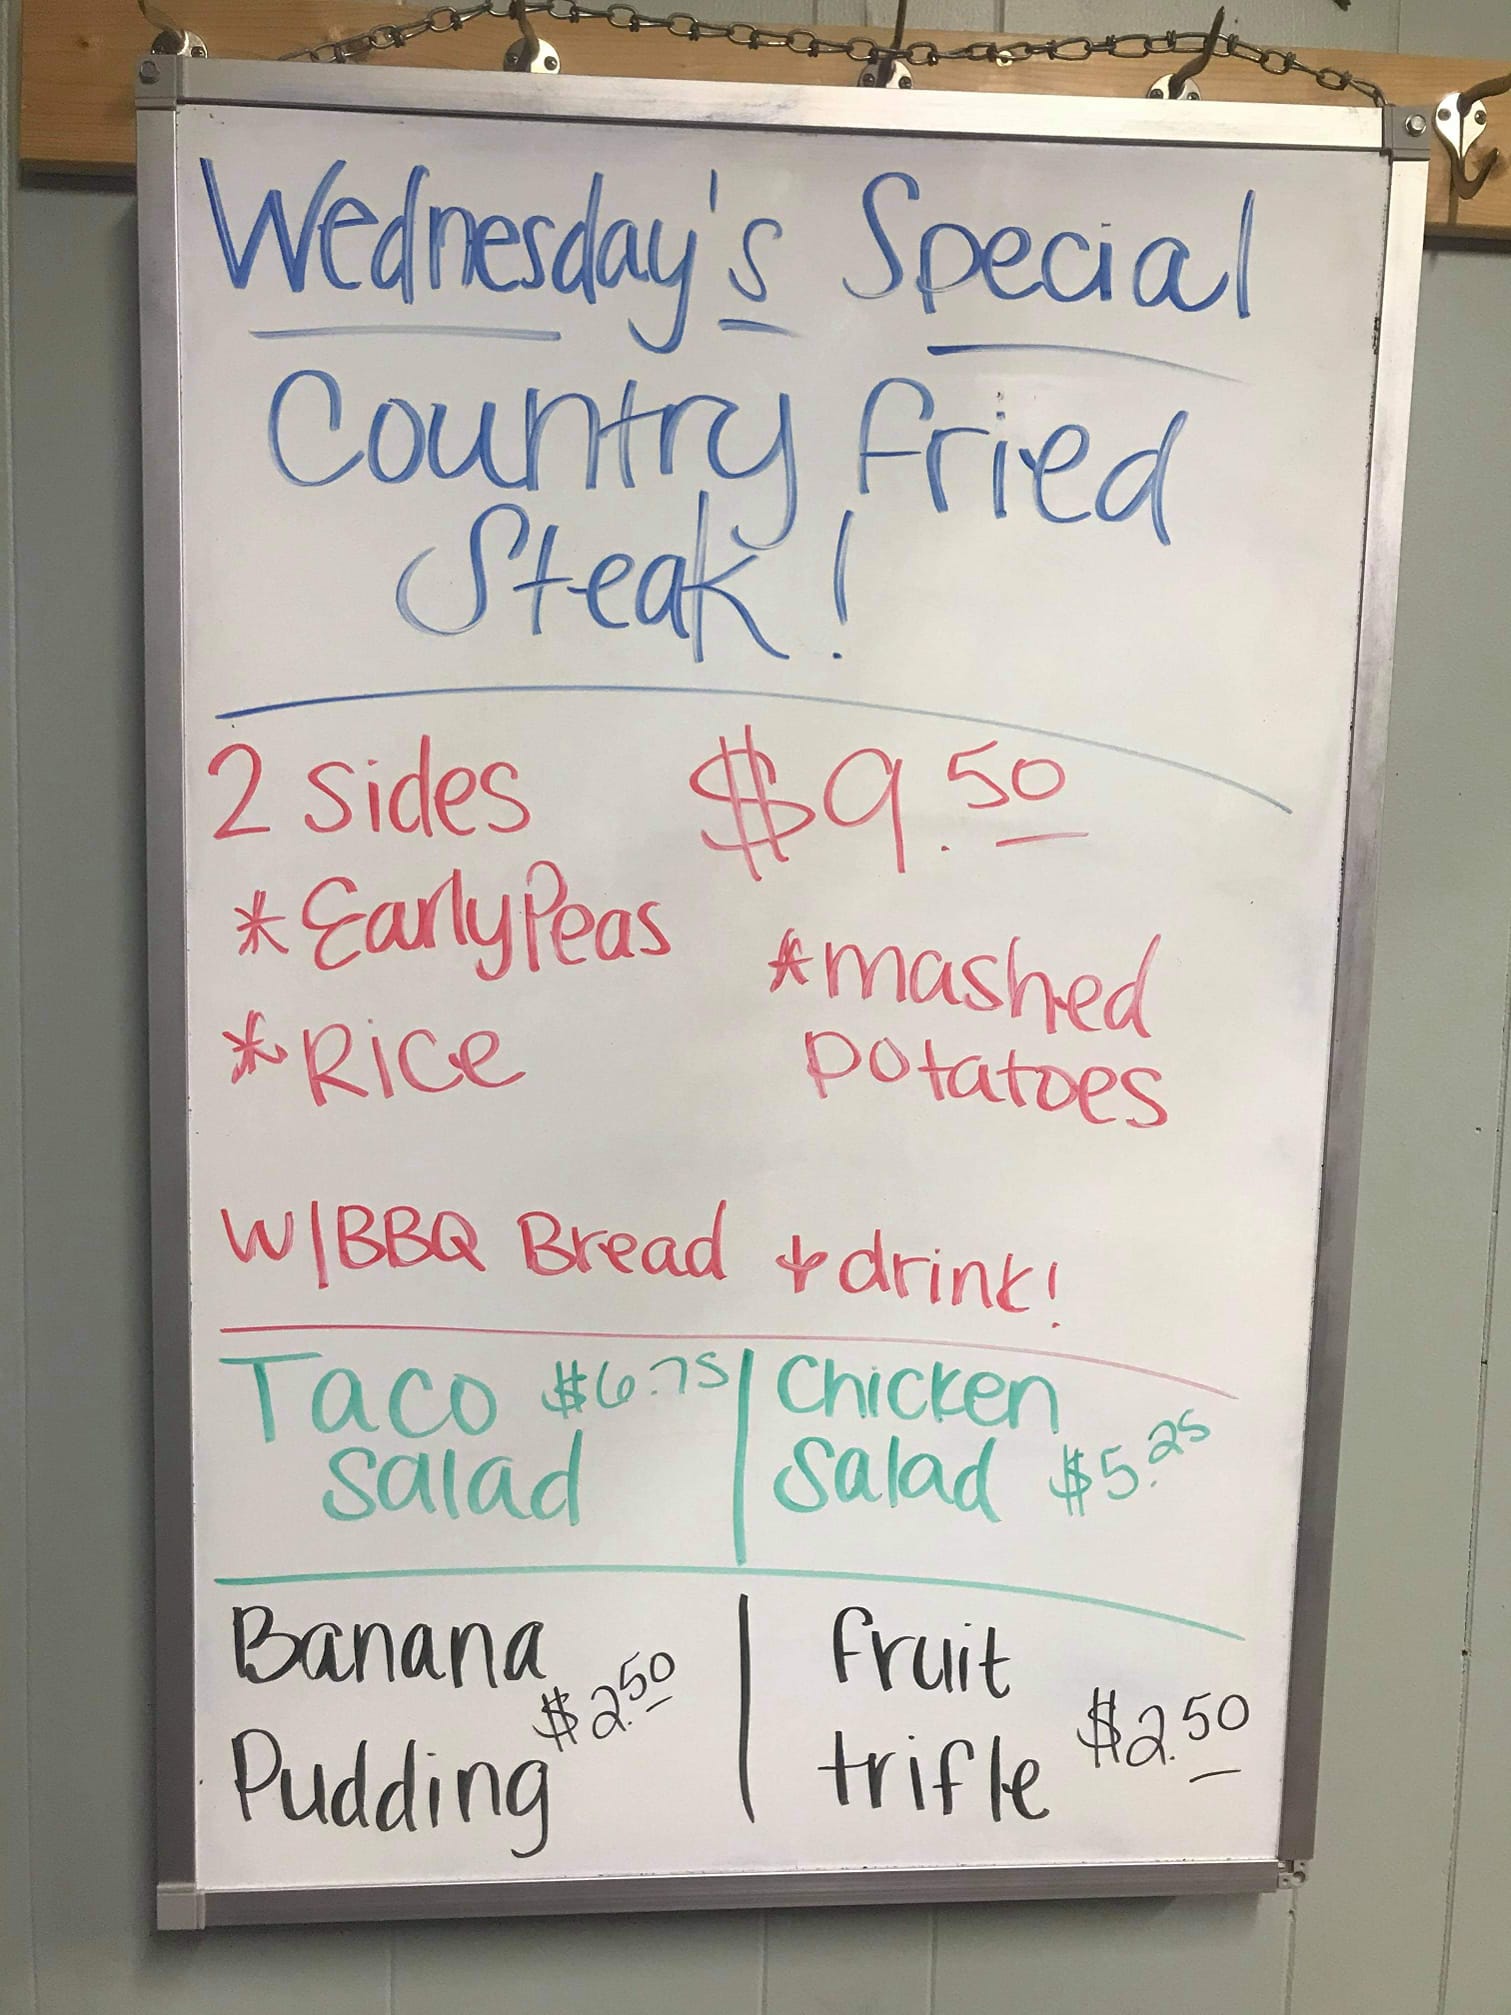 Wednesday's Special
Country Fried
Steak!
2 Sides $9.50
*Early Peas
*Mashed
Potatoes
*Rice
W/BBQ Bread + drink!
Taco $6.75
Salad
Chicken
Salad $5.25
Banana
Pudding $2.50
Fruit
trifle $2.50